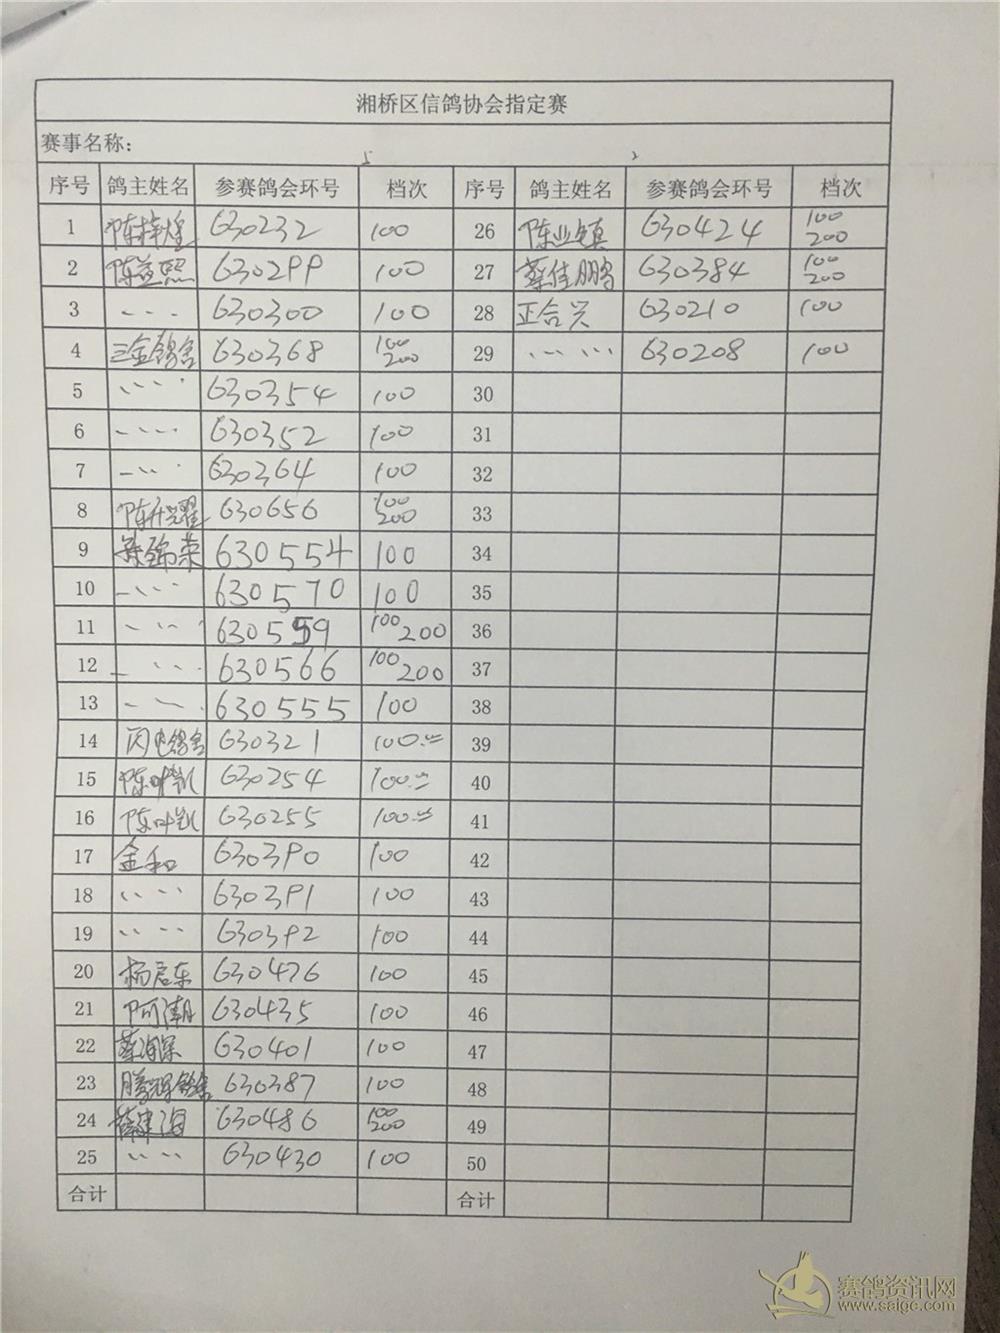 湘桥区信鸽协会指定赛
赛事名称：
序号 鸽主姓名 参赛鸽会环号 档次 序号 鸽主姓名 参赛鸽会环号 档次
1 陈梓煌 630232 100 26 陈业镇 630424 100 200
2 陈益熙 630299 100 27 蔡佳鹏 630384 100 200
3 630300 100 28 正合兴 630210 100
4 三金鸽舍 630368 100 200 29 630208 100
5 630354 100 30
6 630352 100 31
7 630364 100 32
8 630656 100 200 33
9 锦荣 630554 100 34
10 630570 100 35
11 630559 100 200 36
12 630566 100 200 37
13 630555 100 38
14 闪电鸽舍 630321 100 39
15 陈叶凯 630254 100 40
16 陈叶凯 630255 100 41
17 金和 630390 100 42
18 630391 100 43
19 630392 100 44
20 杨启东 630476 100 45
21 阿潮 630435 100 46
22 630401 100 47
23 腾辉鸽舍 630387 100 48
24 630486 100 200 49
25 630430 100 50
合计 合计
赛鸽资讯网
www.saigc.com